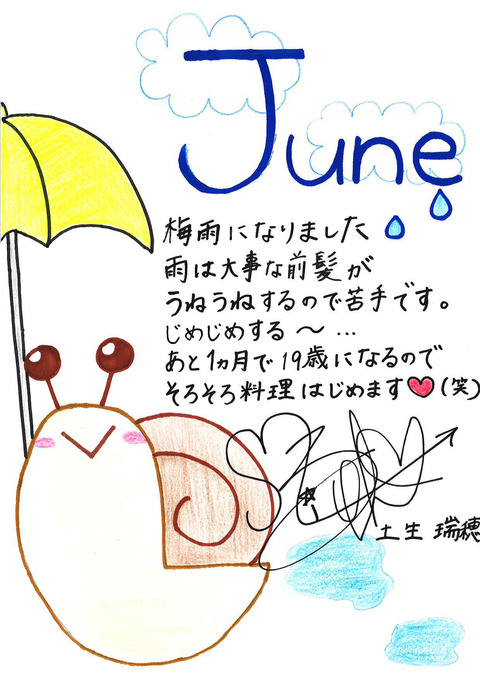 June
梅雨になりました
雨は大事な前髪が
うねうねするので苦手です。
じめじめする〜…
あと1ヵ月で19歳になるので
そろそろ料理はじめます♥(笑)
土生 瑞穂